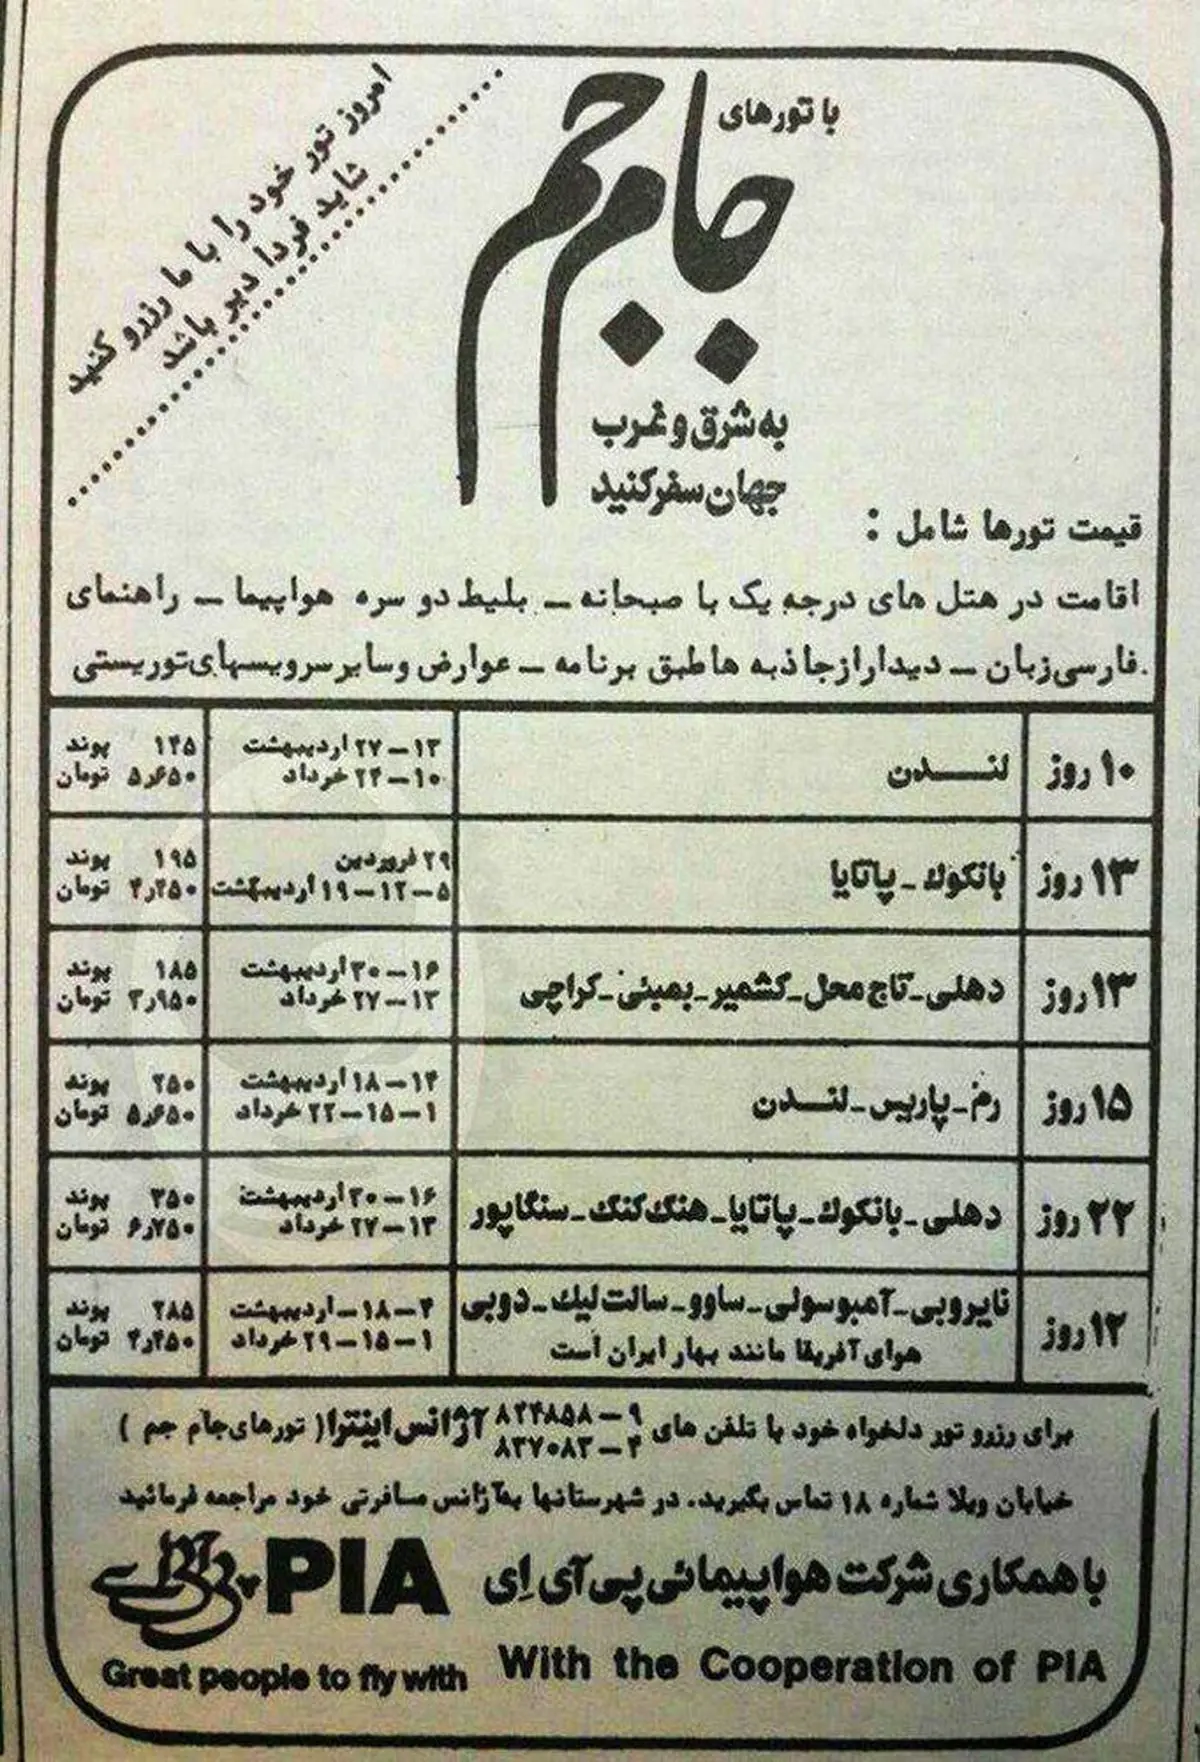 با تورهای
جام جم
به شرق و غرب
جهان سفر کنید
امروز تور خود را با ما رزرو کنید
شاید فردا دیر باشد
قیمت تورها شامل :
اقامت در هتل های درجه یک با صبحانه ـ بلیط دو سره هواپیما ـ راهنمای
فارسی زبان ـ دیدار از جاذبه ها طبق برنامه ـ عوارض و سایر سرویسهای توریستی
۱۰ روز
لنـــدن
۱۳ـ ۲۷ اردیبهشت
۱۰ـ ۲۴ خرداد
۱۴۵ پوند
۵٫۶۵۰ تومان
۱۳ روز
بانکوك ـ پاتایا
۲۹ فروردین
۵ـ ۱۲ـ ۱۹ اردیبهشت
۱۹۵ پوند
۴٫۲۵۰ تومان
۱۳ روز
دهلی ـ تاج محل ـ کشمیر ـ بمبئی ـ کراچی
۱۶ـ ۳۰ اردیبهشت
۱۳ـ ۲۷ خرداد
۱۸۵ پوند
۳٫۹۵۰ تومان
۱۵ روز
رم ـ پاریس ـ لنـدن
۱۴ـ ۱۸ اردیبهشت
۱ـ ۱۵ـ ۲۲ خرداد
۲۵۰ پوند
۵٫۶۵۰ تومان
۲۲ روز
دهلی ـ بانکوك ـ پاتایا ـ هنگ کنگ ـ سنگاپور
۱۶ـ ۳۰ اردیبهشت
۱۳ـ ۲۷ خرداد
۳۵۰ پوند
۶٫۷۵۰ تومان
۱۲ روز
نایروبی ـ آمبوسولی ـ ساوو ـ سالت لیك ـ دوبی
هوای آفریقا مانند بهار ایران است
۴ـ ۱۸ـ اردیبهشت
۱ـ ۱۵ـ ۲۹ خرداد
۲۸۵ پوند
۴٫۴۵۰ تومان
برای رزرو تور دلخواه خود با تلفن های ۹ـ ۸۲۴۸۵۸ آژانس اینترا ( تورهای جام جم )
۴ـ ۸۳۷۰۸۳
خیابان ویلا شماره ۱۸ تماس بگیرید. در شهرستانها به آژانس مسافرتی خود مراجعه فرمائید
با همکاری شرکت هواپیمائی پی آی اِی PIA پی آی اے
With the Cooperation of PIA
Great people to fly with